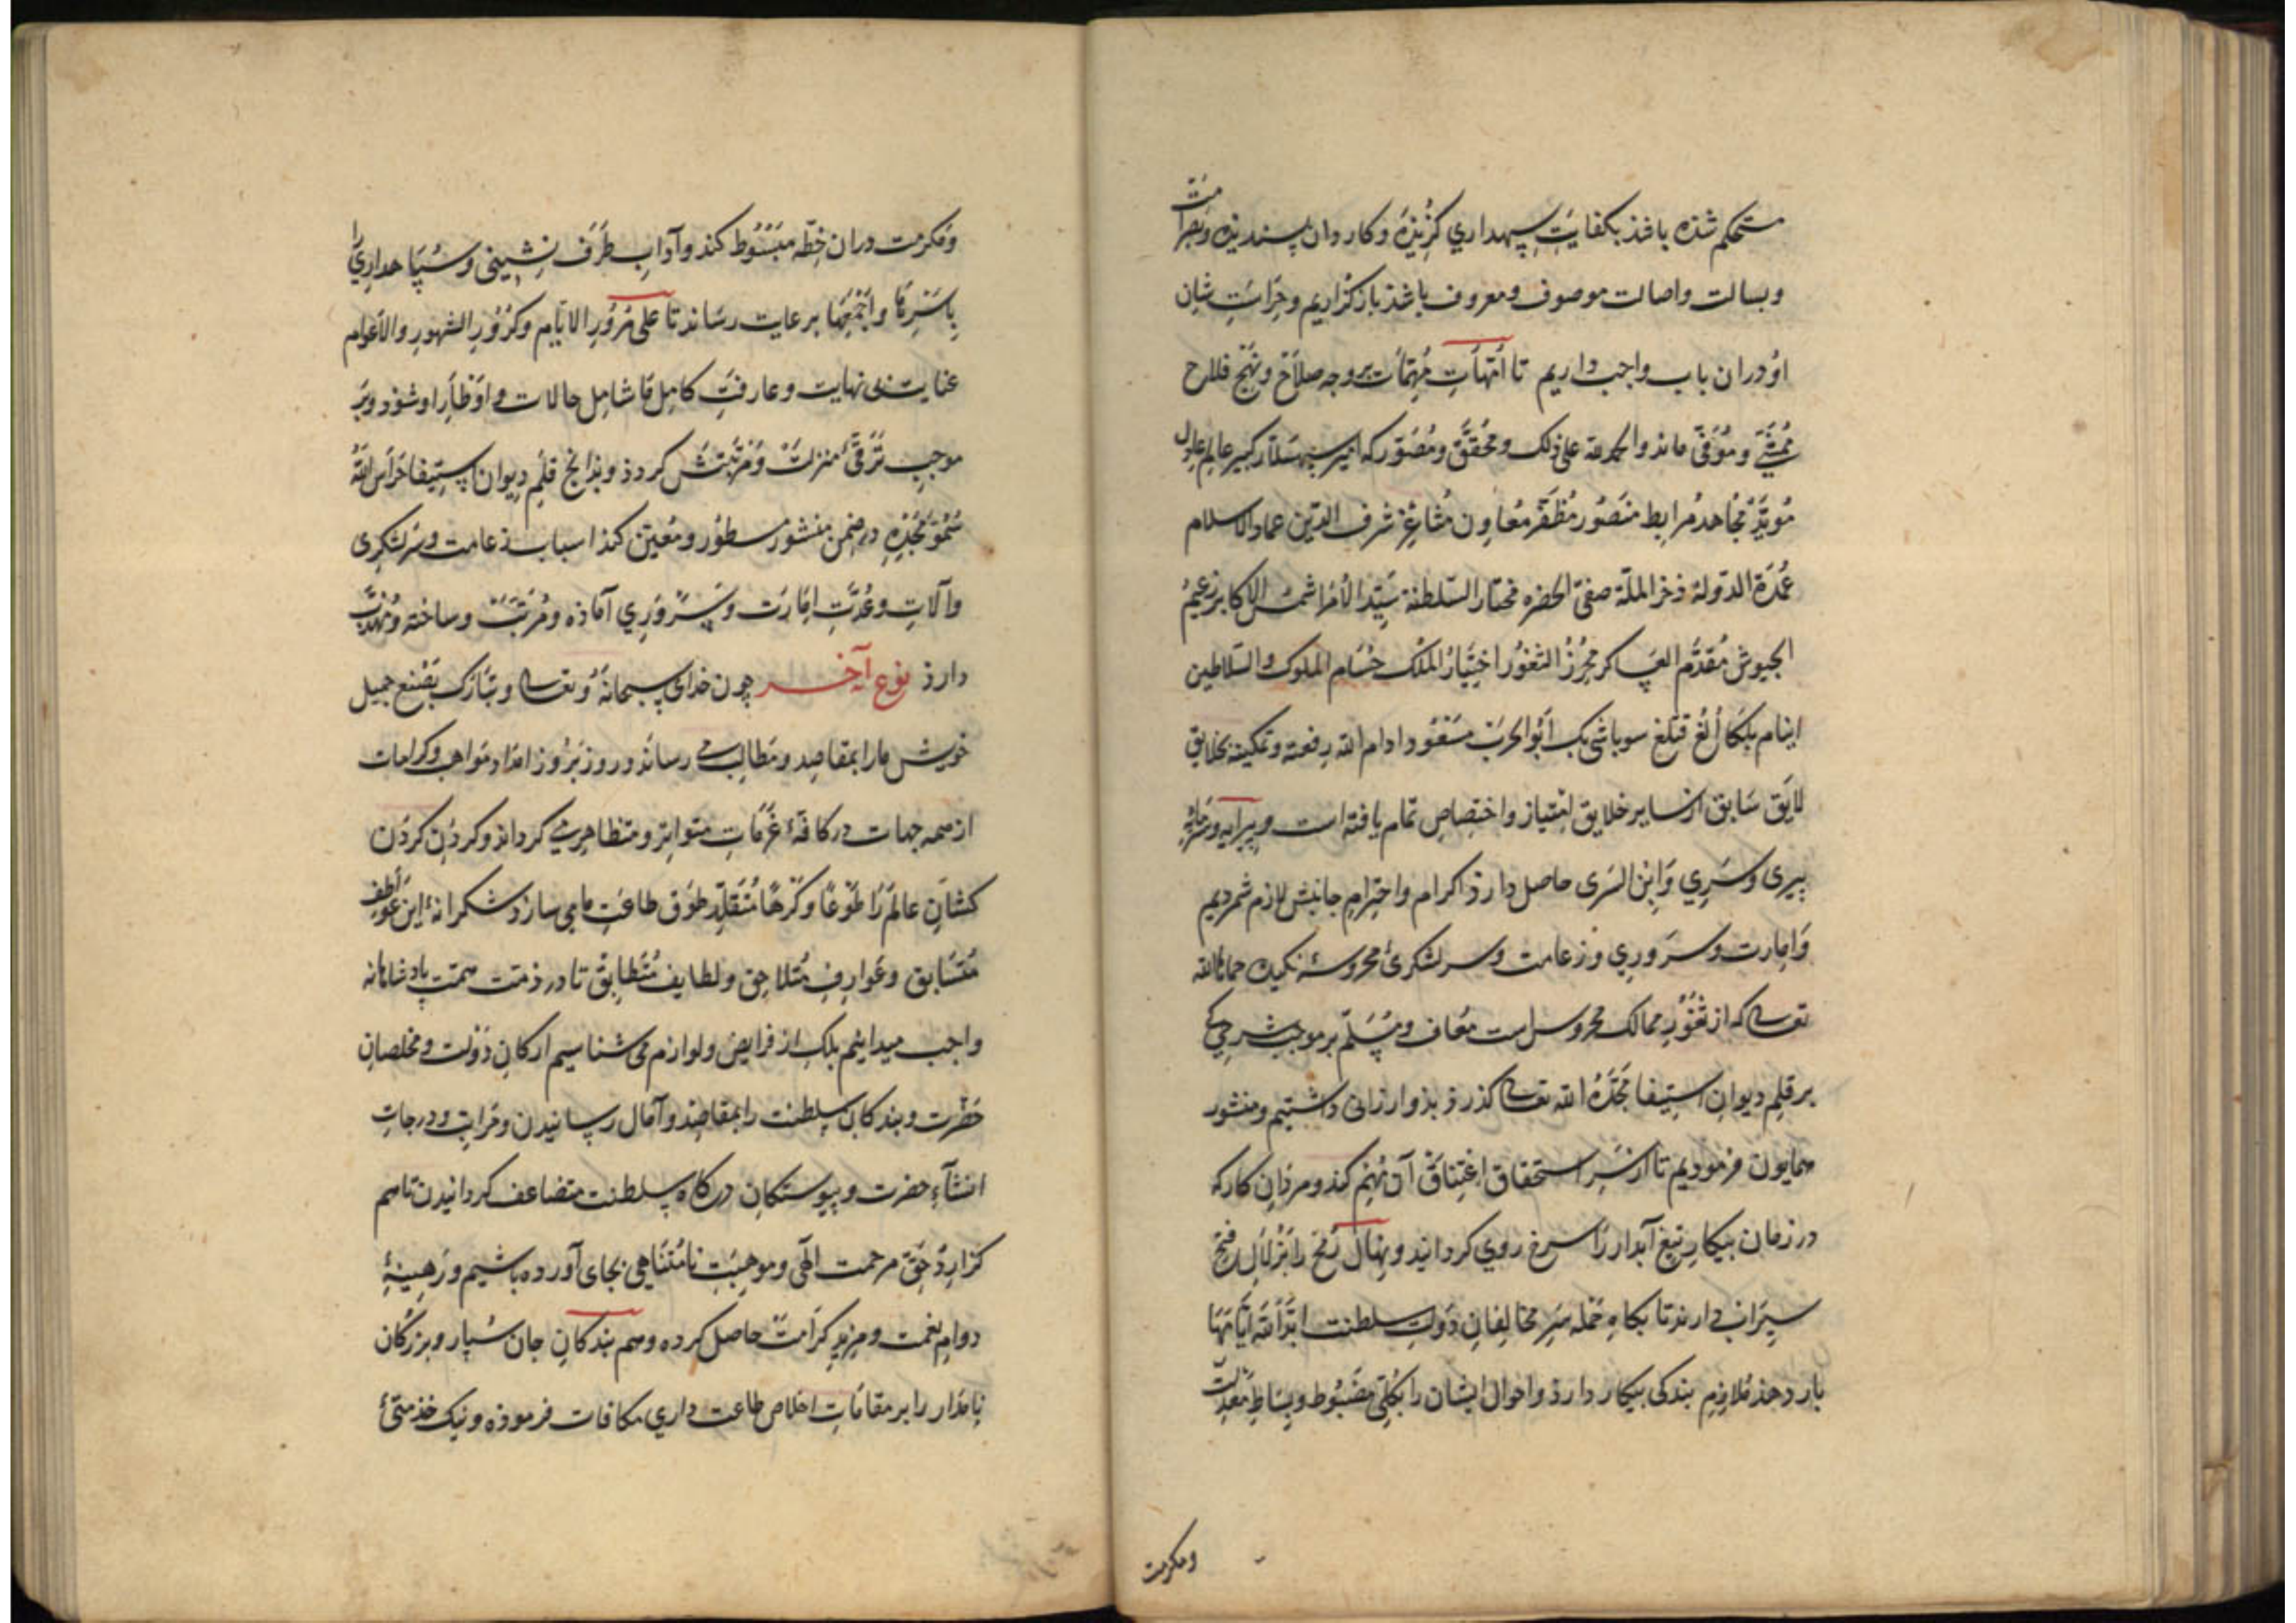 مستحکم شذه باشذ بکفایت سپهداری کزیذه و کاردان پسندیذه و بصرامت
و بسالت و اصالت موصوف و معروف باشذ بازگزاریم و حراست شان
او دران باب واجب داریم تا امهات مهمات بر وجه صلاح و نهج فلاح
ممشی و موفی ماند والحمدلله علی ذلک و محقق و مصور که امیر سپهسالار کبیر عالم عادل
موید مجاهد مرابط منصور مظفر معاون مثاغر شرف الدین عماد الاسلام
عمدة الدولة ذخر الملة صفی الحضره مختار السلطنة سید الامرا شمس الاکابر زعیم
الجیوش مقدم العساکر محرز الثغور اختیار الملک حسام الملوک والسلاطین
اینام بلکا الغ قتلغ سوباشی بک ابو الحرب مسعود ادام الله رفعته و تمکینه بخلایق
لایق سابق از سایر خلایق امتیاز و اختصاص تمام یافته است و پیرایه و سرمایه
پیری و سری و ابن السری حاصل دارذ اکرام و احترام جانبش لازم شمردیم
و امارت و سروری و زعامت و سرلشکری محروسه نکیده حماها الله
تعالی که از ثغور ممالک محروس است معاف و مسلم بر موجب شرحی کی
بر قلم دیوان استیفا مجده الله تعالی گذرذ بذو ارزانی داشتیم و منشور
همایون فرمودیم تا از سر استحقاق اعتناق آن مهم کند و مردان کار که
در زمان پیکار تیغ آبدار را سرخ روی کردانند و نهال رمح را بزلال فتح
سیراب دارند تا بکاه حمله سر مخالفان دولت سلطنت ابد الله ایامها
بار دهذ ملازم بندکی بیکار دارذ و احوال ایشان را بکلی مضبوط و بساط معدلت
و مکرمت
و مکرمت دران خطه مبسوط کند و آداب طرف نشینی و سپاهداری را
باسرها و اجمعها برعایت رساند تا علی مرور الایام و کرور الشهور والاعوام
عنایت بی نهایت و عارفت کامل ما شامل حالات و اوطار او شوذ و بر
موجب ترقی منزلت و مرتبتش کردد و بذانج قلم دیوان استیفا حرس الله
سمو مجده در ضمن منشور مسطور و معین کند اسباب زعامت و سرلشکری
و آلات و عدت امارت و سروری آماذه و مرتب و ساخته و مهذب
دارذ نوع آخر چون خدای سبحانه و تعالی و تبارک بصنع جمیل
خویش ما را بمقاصد و مطالب می رساند و روز بروز امداد مواهب و کرامات
از همه جهات در کافه عزمات متواتر و متظاهر می کرداند و کردن کردن
کشان عالم را طوعا و کرها متقلد طوق طاعت ما می سازد شکرانه این عواطف
متسابق و عوارف متلاحق و لطایف متطابق تا در ذمت همت پادشاهانه
واجب میدانیم بلک از فرایض و لوازم می شناسیم ارکان دولت و مخلصان
حضرت و بندکان سلطنت را بمقاصد و آمال رسانیدن و مراتب و درجات
انشآء حضرت و پیوستکان درکاه سلطنت متضاعف کردانیدن تا هم
کزارد حق مرحمت الهی و موهبت نامتناهی بجای آورده باشیم و رهینه
دوام نعمت و مزید کرامت حاصل کرده و هم بندکان جان سپار و بزرکان
نامدار را بر مقامات اخلاص طاعت داری مکافات فرموذه و نیک خذمتی